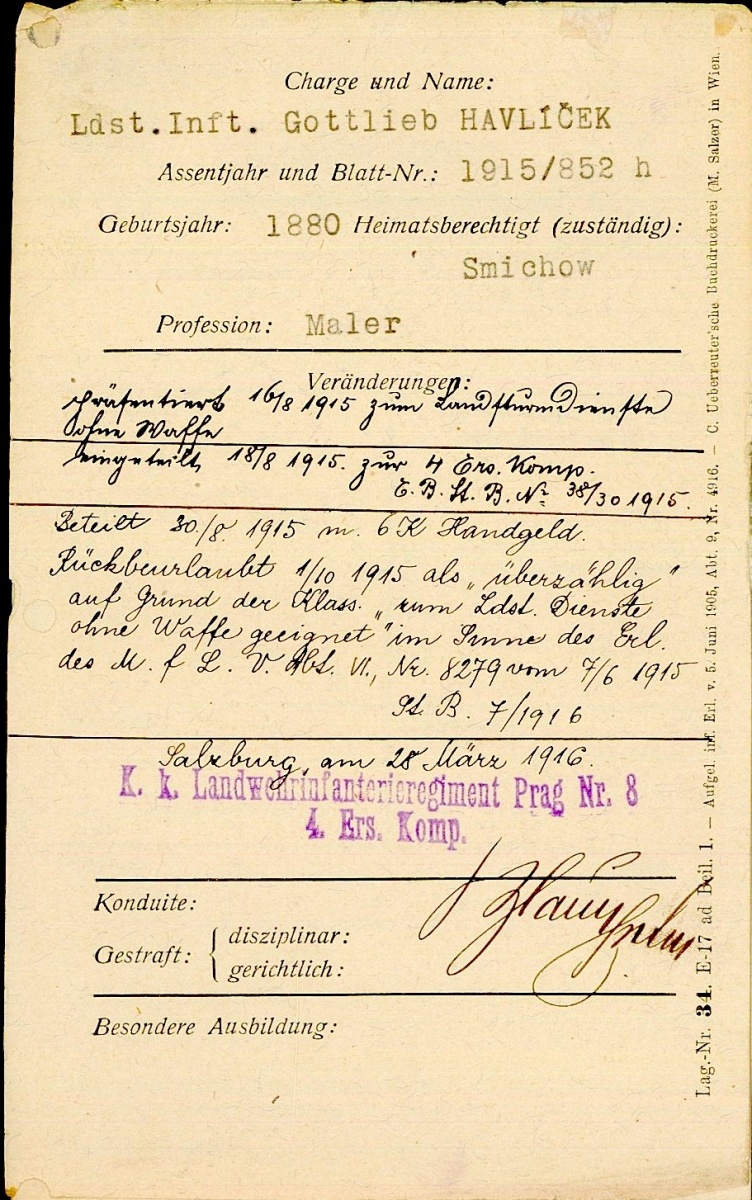 Charge und Name:
Ldst.Inft. Gottlieb HAVLÍČEK
Assentjahr und Blatt-Nr.: 1915/852 h
Geburtsjahr: 1880 Heimatsberechtigt (zuständig):
Smichow
Profession: Maler
Veränderungen:
präsentiert 16/8 1915 zum Landsturmdienste
ohne Waffe
eingeteilt 18/8 1915. zur 4 Ers. Komp.
E. B. St. B. No 38/30 1915.
Beteilt 30/8. 1915 m. 6 K Handgeld.
Rückbeurlaubt 1/10 1915 als „überzählig"
auf Grund der Klass. „zum Ldst. Dienste
ohne Waffe geeignet" im Sinne des Erl.
des M. f L. V. Abt. VI., Nr. 8279 vom 7/6 1915
St. B. 7/1916
Salzburg, am 28 März 1916.
K. k. Landwehrinfanterieregiment Prag Nr. 8
4. Ers. Komp.
Konduite:
Gestraft: { disziplinar:
gerichtlich:
Besondere Ausbildung:
Lag.-Nr. 34. E-17 ad Beil. 1. — Aufgel. inf. Erl. v. 5. Juni 1905, Abt. 9, Nr. 4916. — C. Ueberreuter'sche Buchdruckerei (M. Salzer) in Wien.